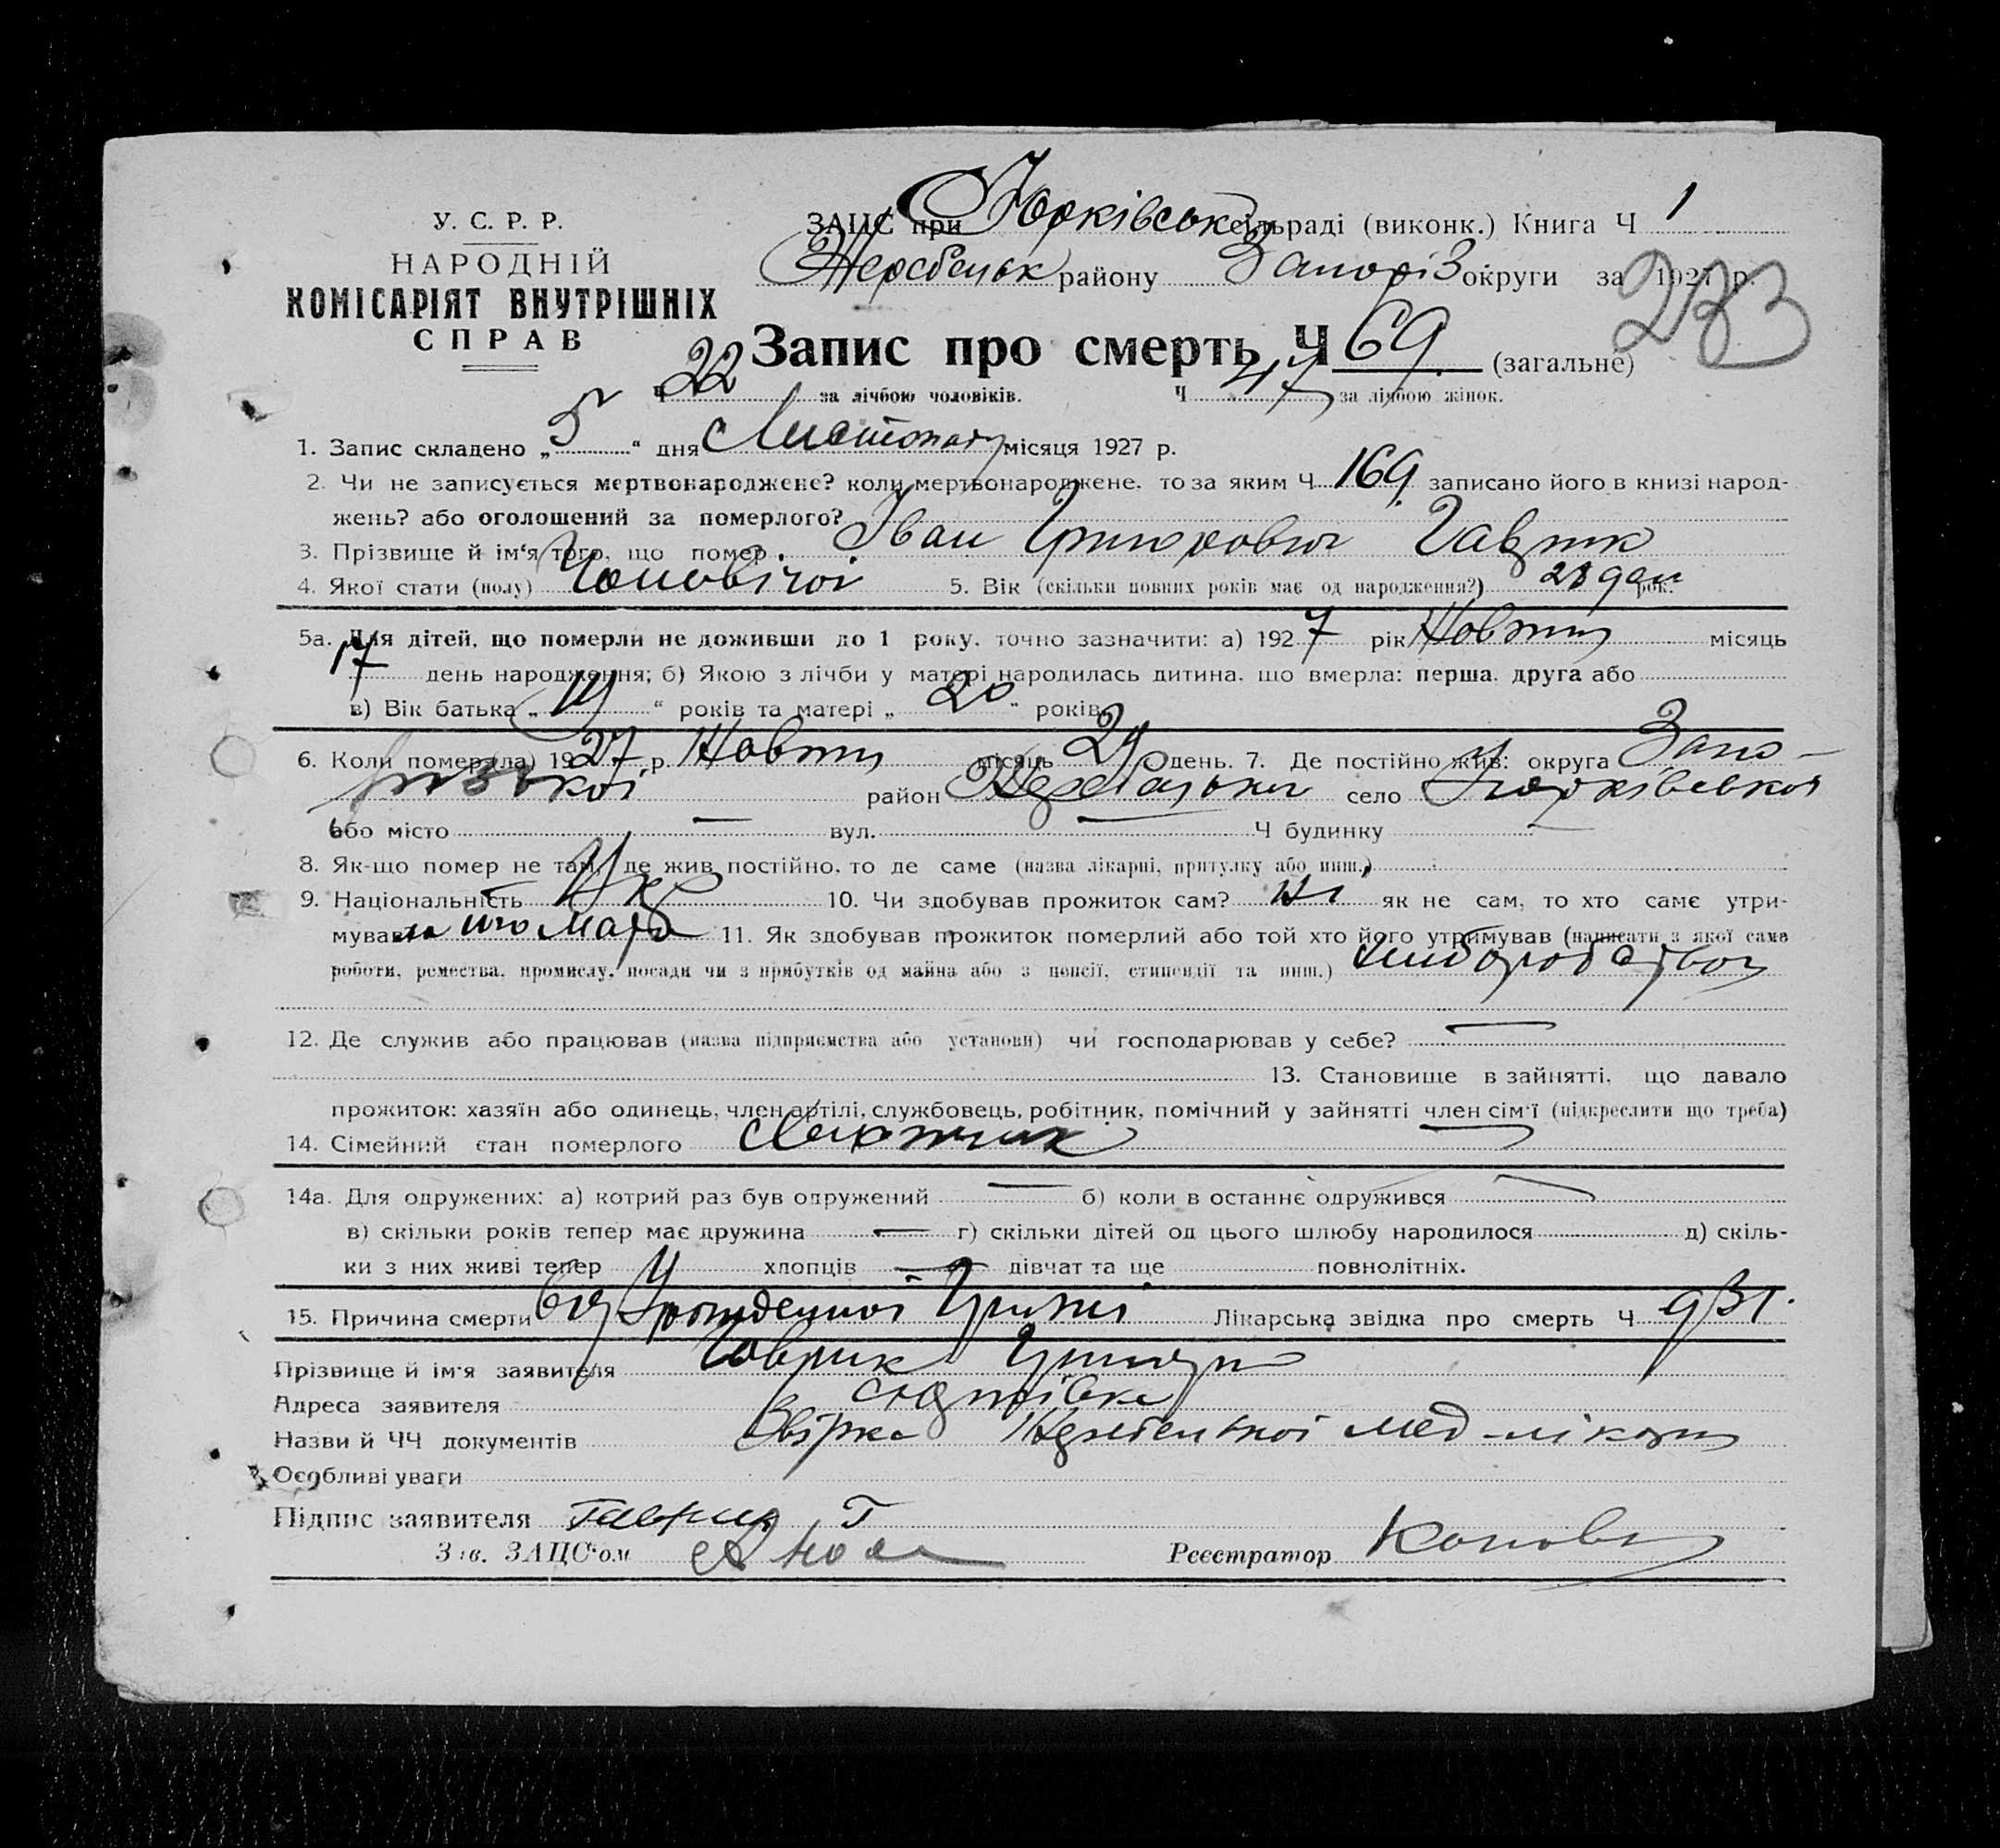 У. С. Р. Р.
НАРОДНІЙ
КОМІСАРІЯТ ВНУТРІШНІХ
СПРАВ
ЗАЦС при Юрківськ сільраді (виконк.) Книга Ч 1
Жеребецьк району Запоріз округи за 1927 р.
233
Запис про смерть Ч 69 (загальне)
Ч 22 за лічбою чоловіків. Ч 47 за лічбою жінок.
1. Запис складено „ 5 “ дня Листопад місяця 1927 р.
2. Чи не записується мертвонароджене? коли мертвонароджене, то за яким Ч 169 записано його в книзі народ-
жень? або оголошений за померлого?
3. Прізвище й ім‘я того, що помер Іван Григорович Гаврик
4. Якої стати (полу) Чоловічої 5. Вік (скільки повних років має од народження?) рок.
5а. Для дітей, що померли не доживши до 1 року, точно зазначити: а) 1927 рік Жовтня місяць
17 день народження; б) Якою з лічби у матері народилась дитина, що вмерла: перша, друга або
в) Вік батька „ “ років та матері „ 20 “ років
6. Коли помер(ла) 1927 р. Жовтня місяць день. 7. Де постійно жив: округа Запо-
різької район Жеребецьки село Юрківської
або місто — вул. — Ч будинку —
8. Як-що помер не там, де жив постійно, то де саме (назва лікарні, притулку або инш.)
9. Національність Укр 10. Чи здобував прожиток сам? ні як не сам, то хто саме утри-
мував 11. Як здобував прожиток померлий або той хто його утримував (написати з якої саме
роботи, ремества, промислу, посади чи з прибутків од майна або з пенсії, стипендії та инш.)
12. Де служив або працював (назва підприємства або установи) чи господарював у себе? —
13. Становище в зайнятті, що давало
прожиток: хазяїн або одинець, член артілі, службовець, робітник, помічний у зайнятті член сім‘ї (підкреслити що треба)
14. Сімейний стан померлого
14а. Для одружених: а) котрий раз був одружений — б) коли в останнє одружився —
в) скільки років тепер має дружина — г) скільки дітей од цього шлюбу народилося д) скіль-
ки з них живі тепер хлопців — дівчат та ще повнолітніх.
15. Причина смерти від Урожденної Грижі Лікарська звідка про смерть Ч 931.
Прізвище й ім‘я заявителя Гаврик Григорій
Адреса заявителя
Назви й ЧЧ документів Звірка Жеребецької мед-лікарні
Особливі уваги
Підпис заявителя Гаврик Г
Зав. ЗАЦС‘ом
Реєстратор